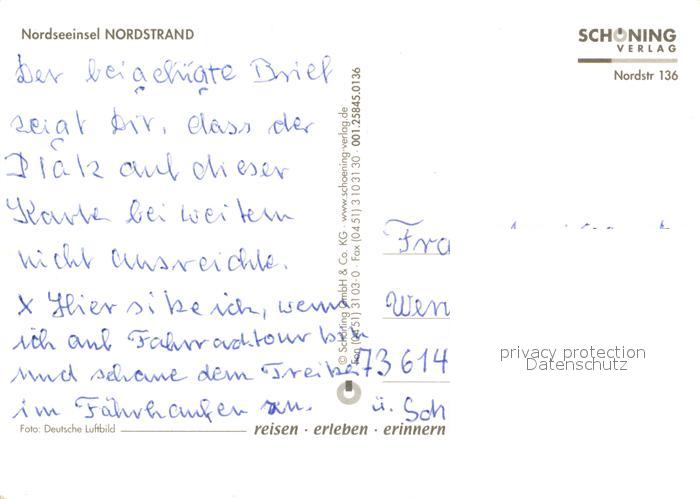 Nordseeinsel NORDSTRAND
SCHÖNING
VERLAG
Nordstr 136
Der beigefügte Brief
zeigt Dir, dass der
Platz auf dieser
Karte bei weitem
nicht ausreichte.
x Hier sitze ich, wenn
ich auf Fahrradtour bin
und schaue dem Treiben
im Fährhafen zu.
Foto: Deutsche Luftbild
reisen · erleben · erinnern
© Schöning GmbH & Co. KG · www.schoening-verlag.de
Fon (04 51) 31 03-0 · Fax (04 51) 3 10 31 30 · 001.25845.0136
Fra
Wer
73614
ü. Sch
privacy protection
Datenschutz